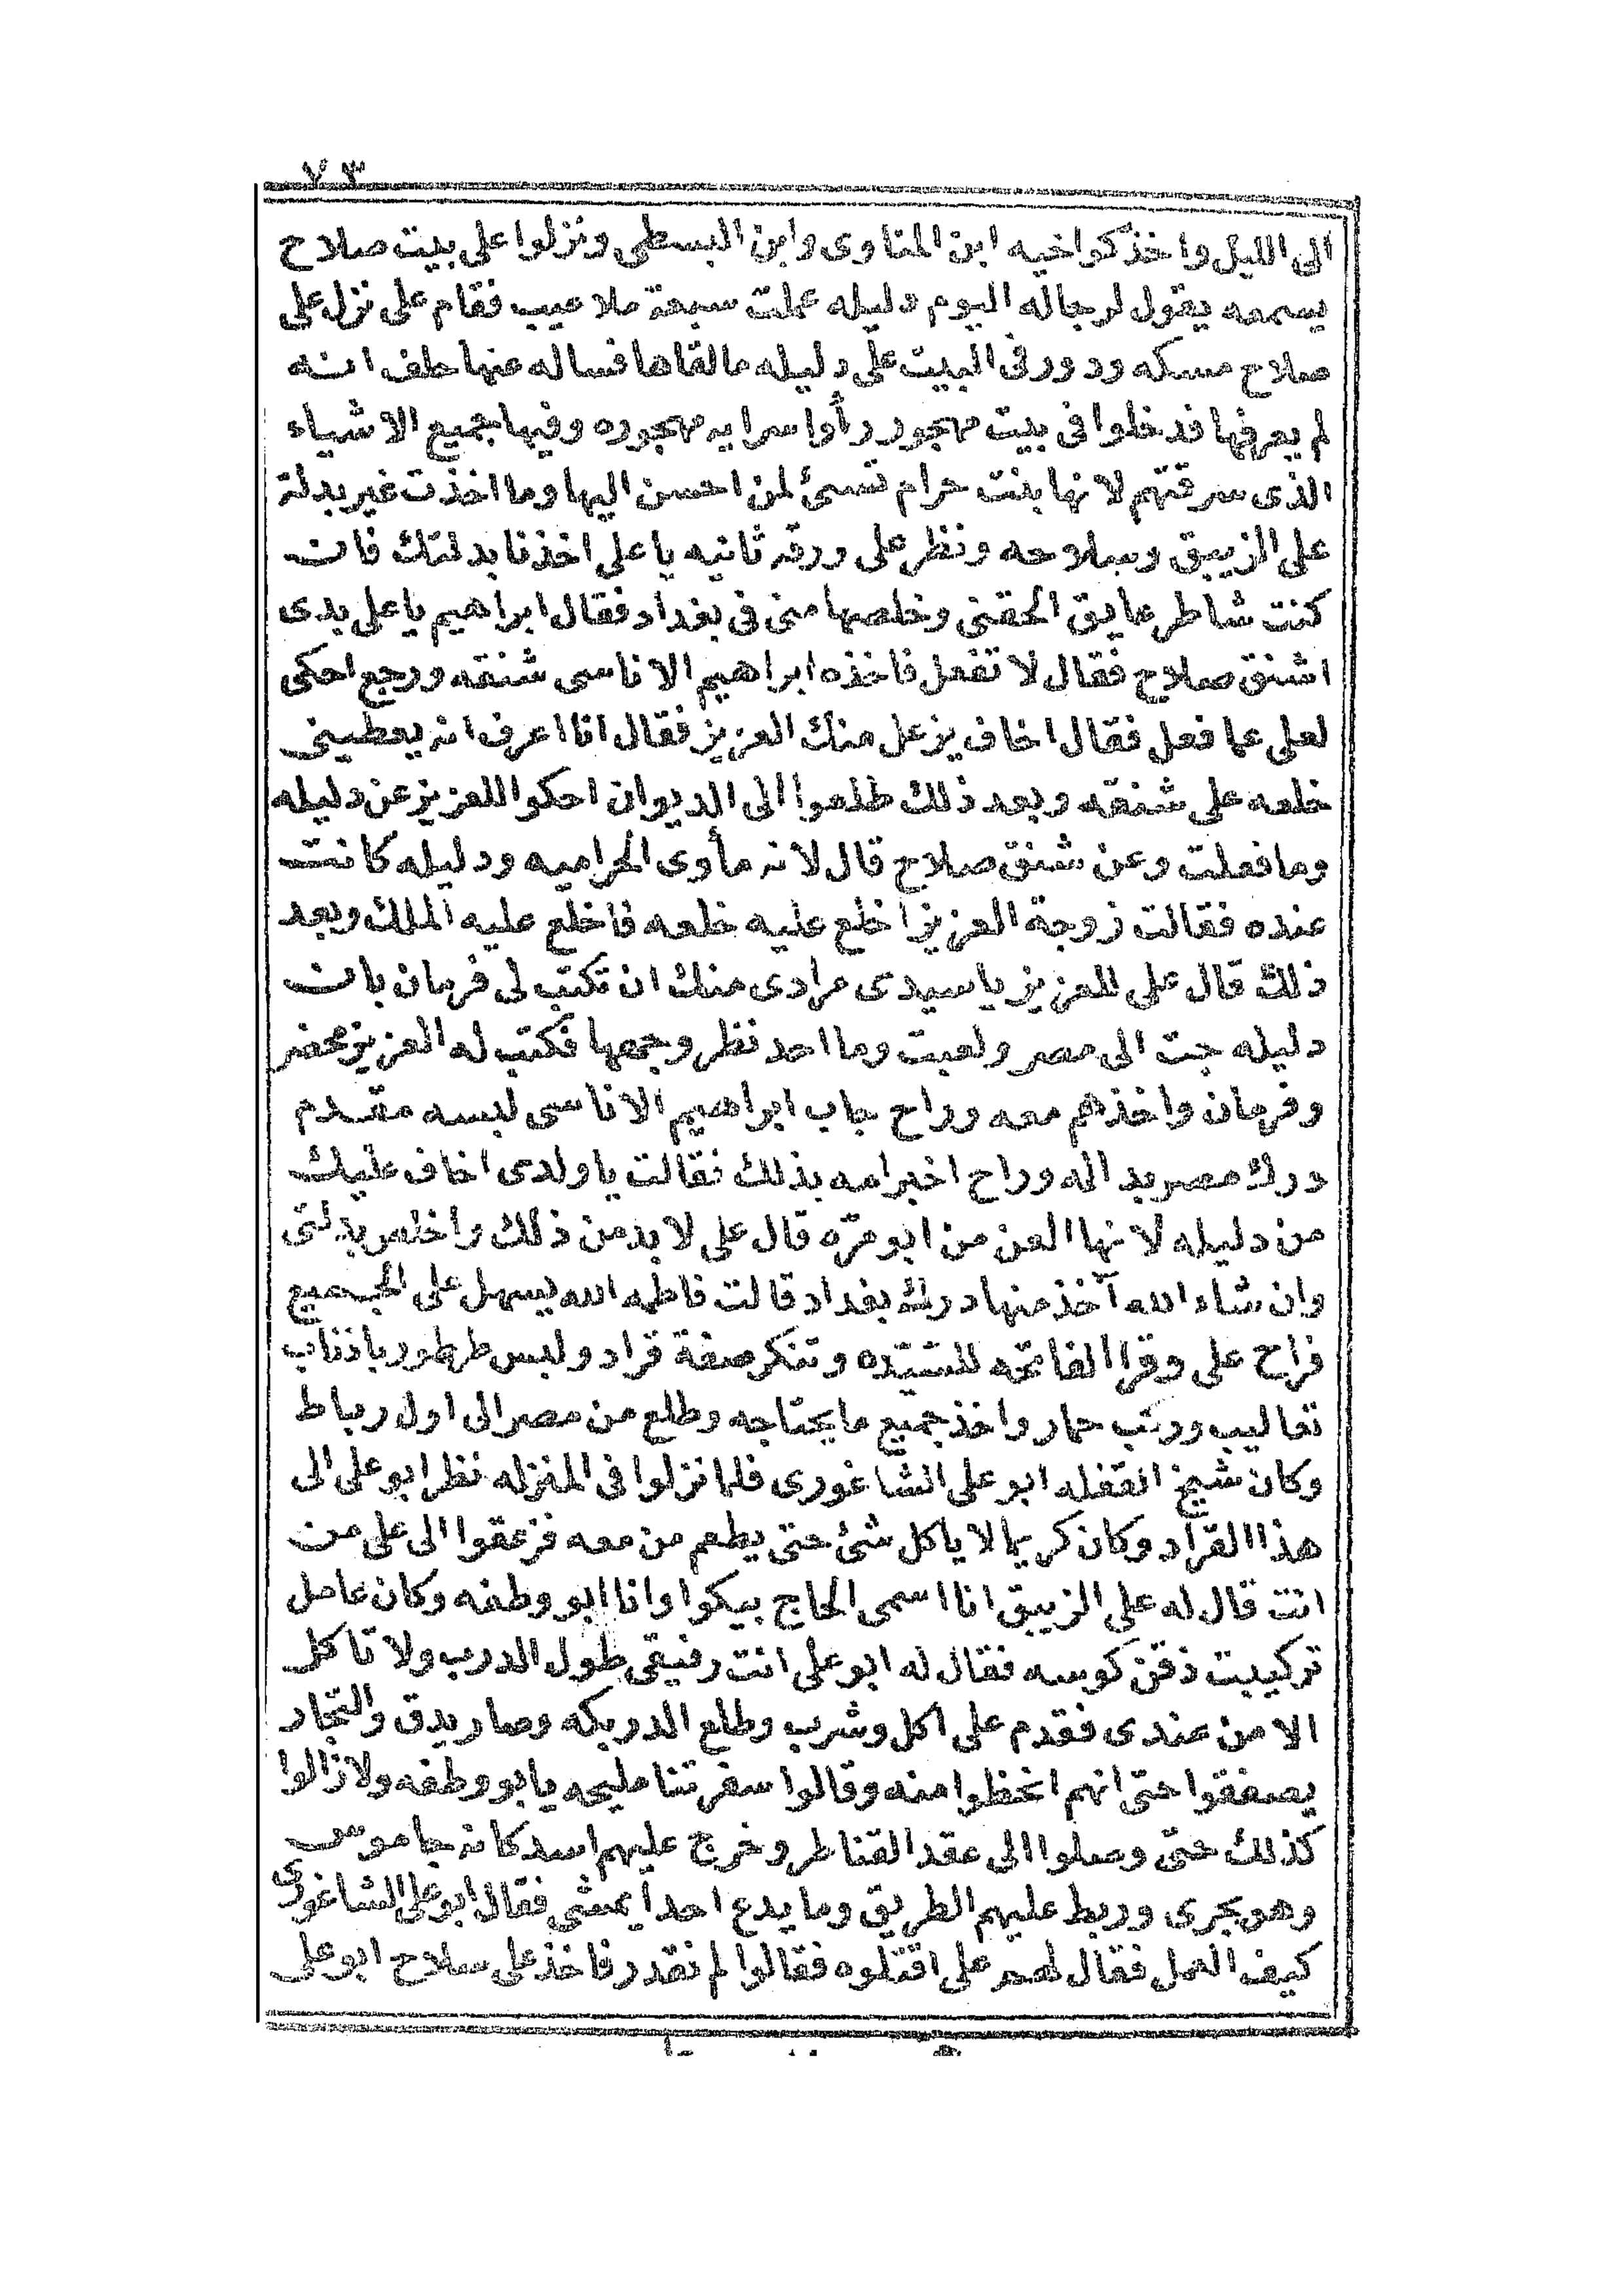 ٧٣
الى الليل واخذ كواخيه ابن المناوى وابن البسطى ونزلوا على بيت صلاح
يسمعه يقول لرجاله اليوم دليله عملت سبعة ملاعيب فقام على نزل على
صلاح مسكه ودور فى البيت على دليله مالقاها فساله عنها حلف انه
لم يعرفها فدخلوا فى بيت مهجور رأوا سرايه مهجوره وفيها جميع الاشياء
الذى سرقتهم لانها بنت حرام تسئ لمن احسن اليها وما اخذت غير بدلة
على الزيبق وسلاحه ونظر على ورقه ثانيه يا على اخذنا بدلتك فان
كنت شاطر عايق الحقنى وخلصها منى فى بغداد فقال ابراهيم يا على بدى
اشنق صلاح فقال لا تفعل فاخذه ابراهيم الاناسى شنقه ورجع احكى
لعلى عما فعل فقال اخاف يزعل منك العزيز فقال انا اعرف انه يعطينى
خلعه على شنقه وبعد ذلك طلعوا الى الديوان احكوا للعزيز عن دليله
وما فعلت وعن شنق صلاح قال لانه مأوى الحراميه ودليله كانت
عنده فقالت زوجة العزيز اخلع عليه خلعه فاخلع عليه الملك وبعد
ذلك قال على للعزيز يا سيدى مرادى منك ان تكتب لى فرمان بان
دليله جت الى مصر ولعبت وما احد نظر وجهها فكتب له العزيز محضر
وفرمان واخذهم معه وراح جاب ابراهيم الاناسى لبسه مقدم
درك مصر بداله وراح اخبر امه بذلك فقالت يا ولدى اخاف عليك
من دليله لانها العن من ابو مره قال على لابد من ذلك واخلص بدلتى
وان شاء الله آخذ منها درك بغداد قالت فاطمه الله يسهل على الجميع
فراح على وقرا الفاتحه للستيده وتنكر صفة قراد ولبس طرطور باذناب
تعاليب وركب حمار واخذ جميع ما يحتاجه وطلع من مصر الى اول رباط
وكان شيخ القفله ابو على الشاغورى فلما نزلوا فى المنزله نظر ابو على الى
هذا القراد وكان كريما لا ياكل شئ حتى يطعم من معه فزعقوا الى على من
انت قال له على الزيبق انا اسمى الحاج بيكوا وانا ابو وطفه وكان عامل
تركيبت ذقن كوسه فقال له ابو على انت رفيقى طول الدرب ولا تاكل
الا من عندى فقدم على اكل وشرب وطلع الدربكه وصار يدق والتجار
يصفقوا حتى انهم انحظوا منه وقالوا سفرتنا مليحه يا بو وطفه ولازالوا
كذلك حتى وصلوا الى عقد القناطر وخرج عليهم اسد كانه جاموس
وهو يجرى وربط عليهم الطريق وما يدع احدا يمشى فقال ابو على الشاغورى
كيف العمل فقال لهم على اقتلوه فقالوا لم نقدر فاخذ على سلاح ابو على